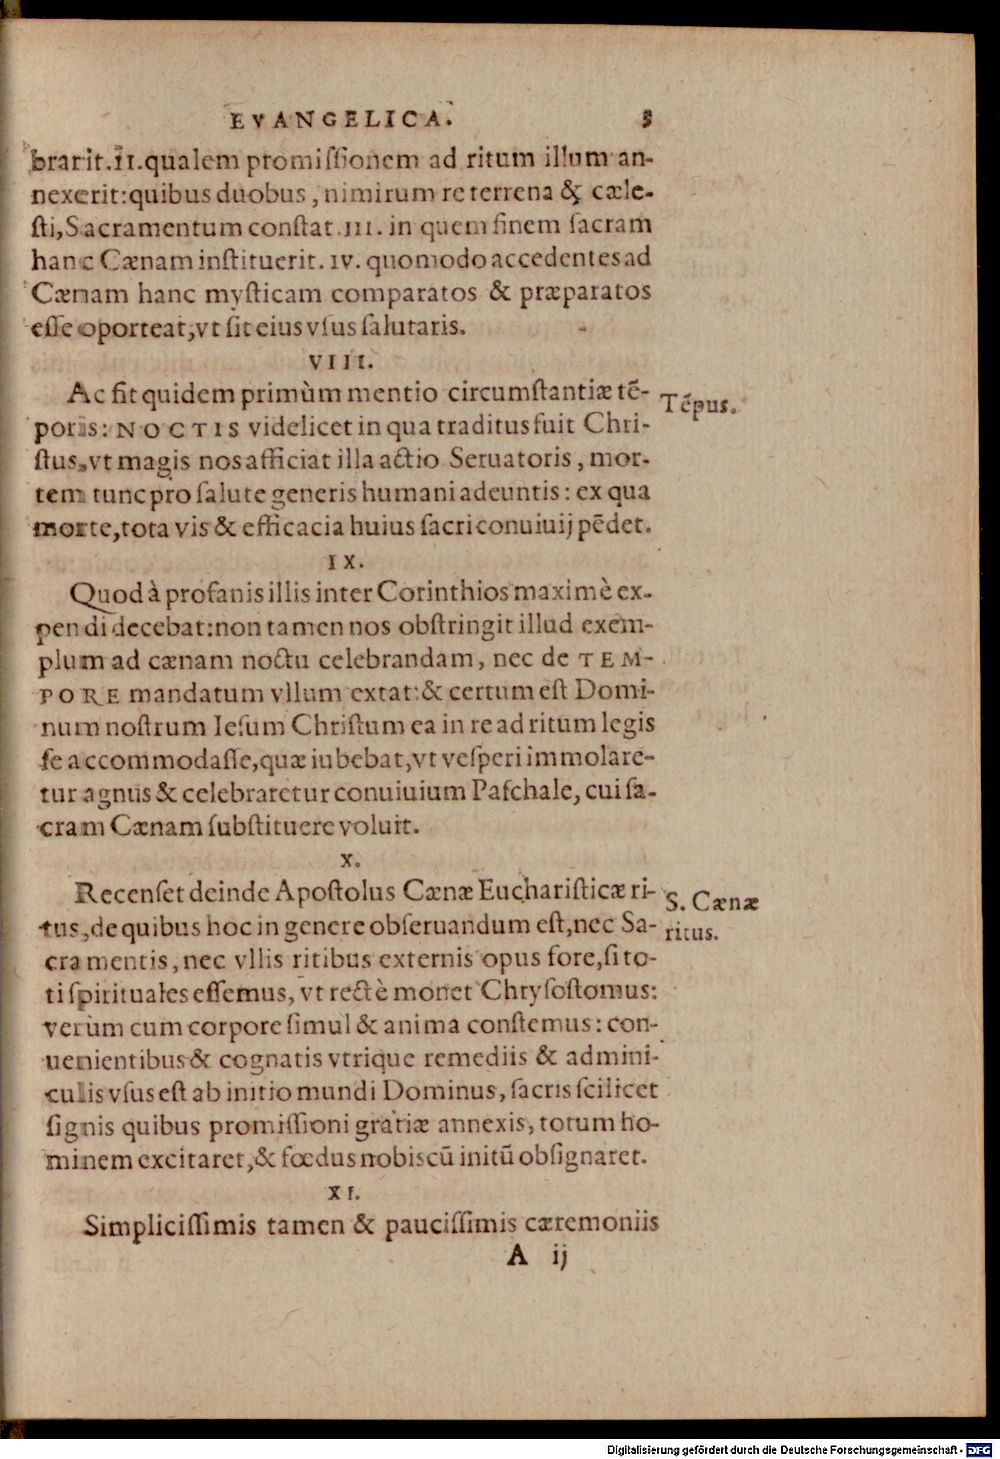 EVANGELICA. 5
brarit.II.qualem promiſſionem ad ritum illum an-
nexerit:quibus duobus, nimirum re terrena & cæle-
ſti,Sacramentum conſtat.III. in quem finem ſacram
hanc Cænam inſtituerit. IV. quomodo accedentes ad
Cænam hanc myſticam comparatos & præparatos
eſſe oporteat,vt ſit eius vſus ſalutaris.
VIII.
Ac fit quidem primùm mentio circumſtantiæ tẽ-
Tẽpus.
poris: NOCTIS videlicet in qua traditus fuit Chri-
ſtus,vt magis nos afficiat illa actio Seruatoris, mor-
tem tunc pro ſalute generis humani adeuntis: ex qua
morte,tota vis & efficacia huius ſacri conuiuij pẽdet.
IX.
Quod à profanis illis inter Corinthios maximè ex-
pendi decebat:non tamen nos obſtringit illud exem-
plum ad cænam noctu celebrandam, nec de TEM-
PORE mandatum vllum extat:& certum eſt Domi-
num noſtrum Ieſum Chriſtum ea in re ad ritum legis
ſe accommodaſſe,quæ iubebat,vt veſperi immolare-
tur agnus & celebraretur conuiuium Paſchale, cui ſa-
cram Cænam ſubſtituere voluit.
X.
Recenſet deinde Apoſtolus Cænæ Euchariſticæ ri-
S. Cænæ
tus,de quibus hoc in genere obſeruandum eſt,nec Sa-
ritus.
cramentis, nec vllis ritibus externis opus fore,ſi to-
ti ſpirituales eſſemus, vt rectè monet Chryſoſtomus:
verùm cum corpore ſimul & anima conſtemus: con-
uenientibus & cognatis vtrique remediis & admini-
culis vſus eſt ab initio mundi Dominus, ſacris ſcilicet
ſignis quibus promiſſioni gratiæ annexis, totum ho-
minem excitaret,& fœdus nobiscũ initũ obſignaret.
XI.
Simpliciſſimis tamen & pauciſſimis cæremoniis
A ij
Digitalisierung gefördert durch die Deutsche Forschungsgemeinschaft - DFG